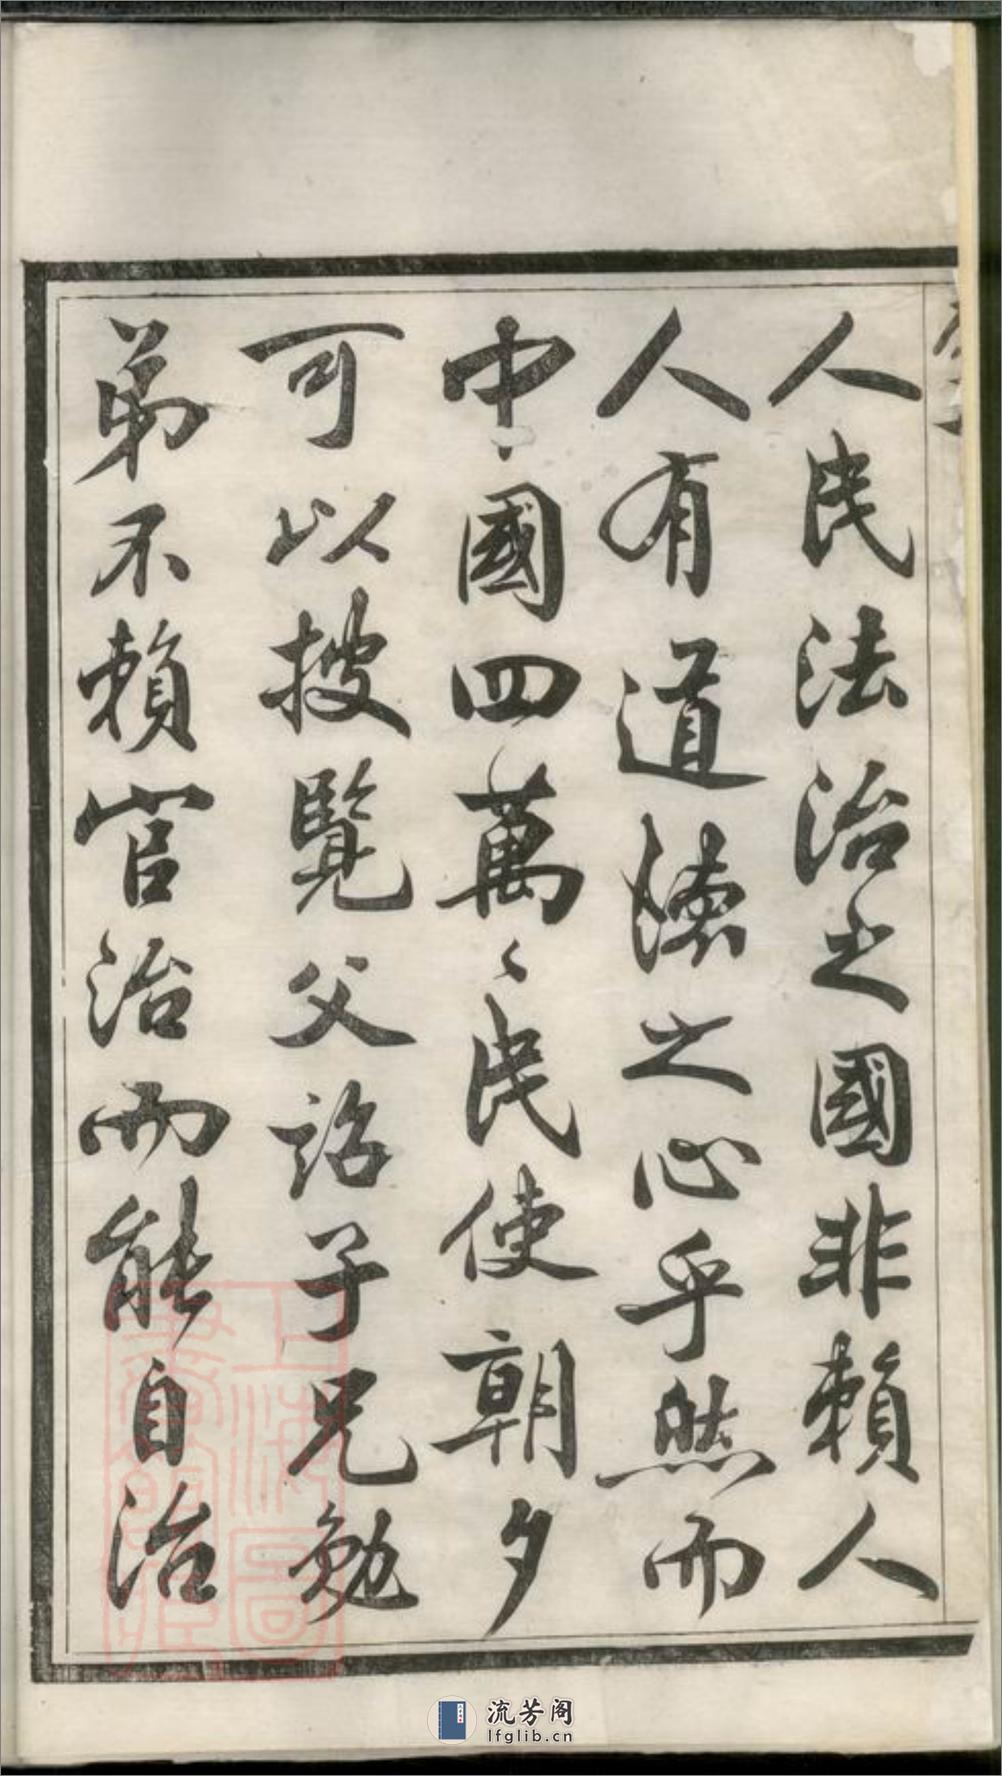 人民法治之國非賴人
人有道德之心乎然而
中國四萬〻民使朝夕
可以披覽父詔子兄勉
弟不賴官治而能自治
上海圖書館藏
流芳阁
lfglib.cn